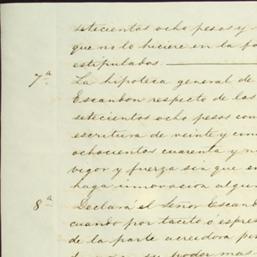 setecientos ocho pesos y
que no lo hiciere en la
estipulados.
7ª La hipoteca general de
Escandon respecto de las
setecientos ocho pesos con
escritura de veinte y cinco
ochocientos cuarenta y n
vigor y fuerza sin que
haga innovacion algun
8ª Declara el Señor Escan
cuando por tacito ó espres
de la parte acreedora per
su poder mas